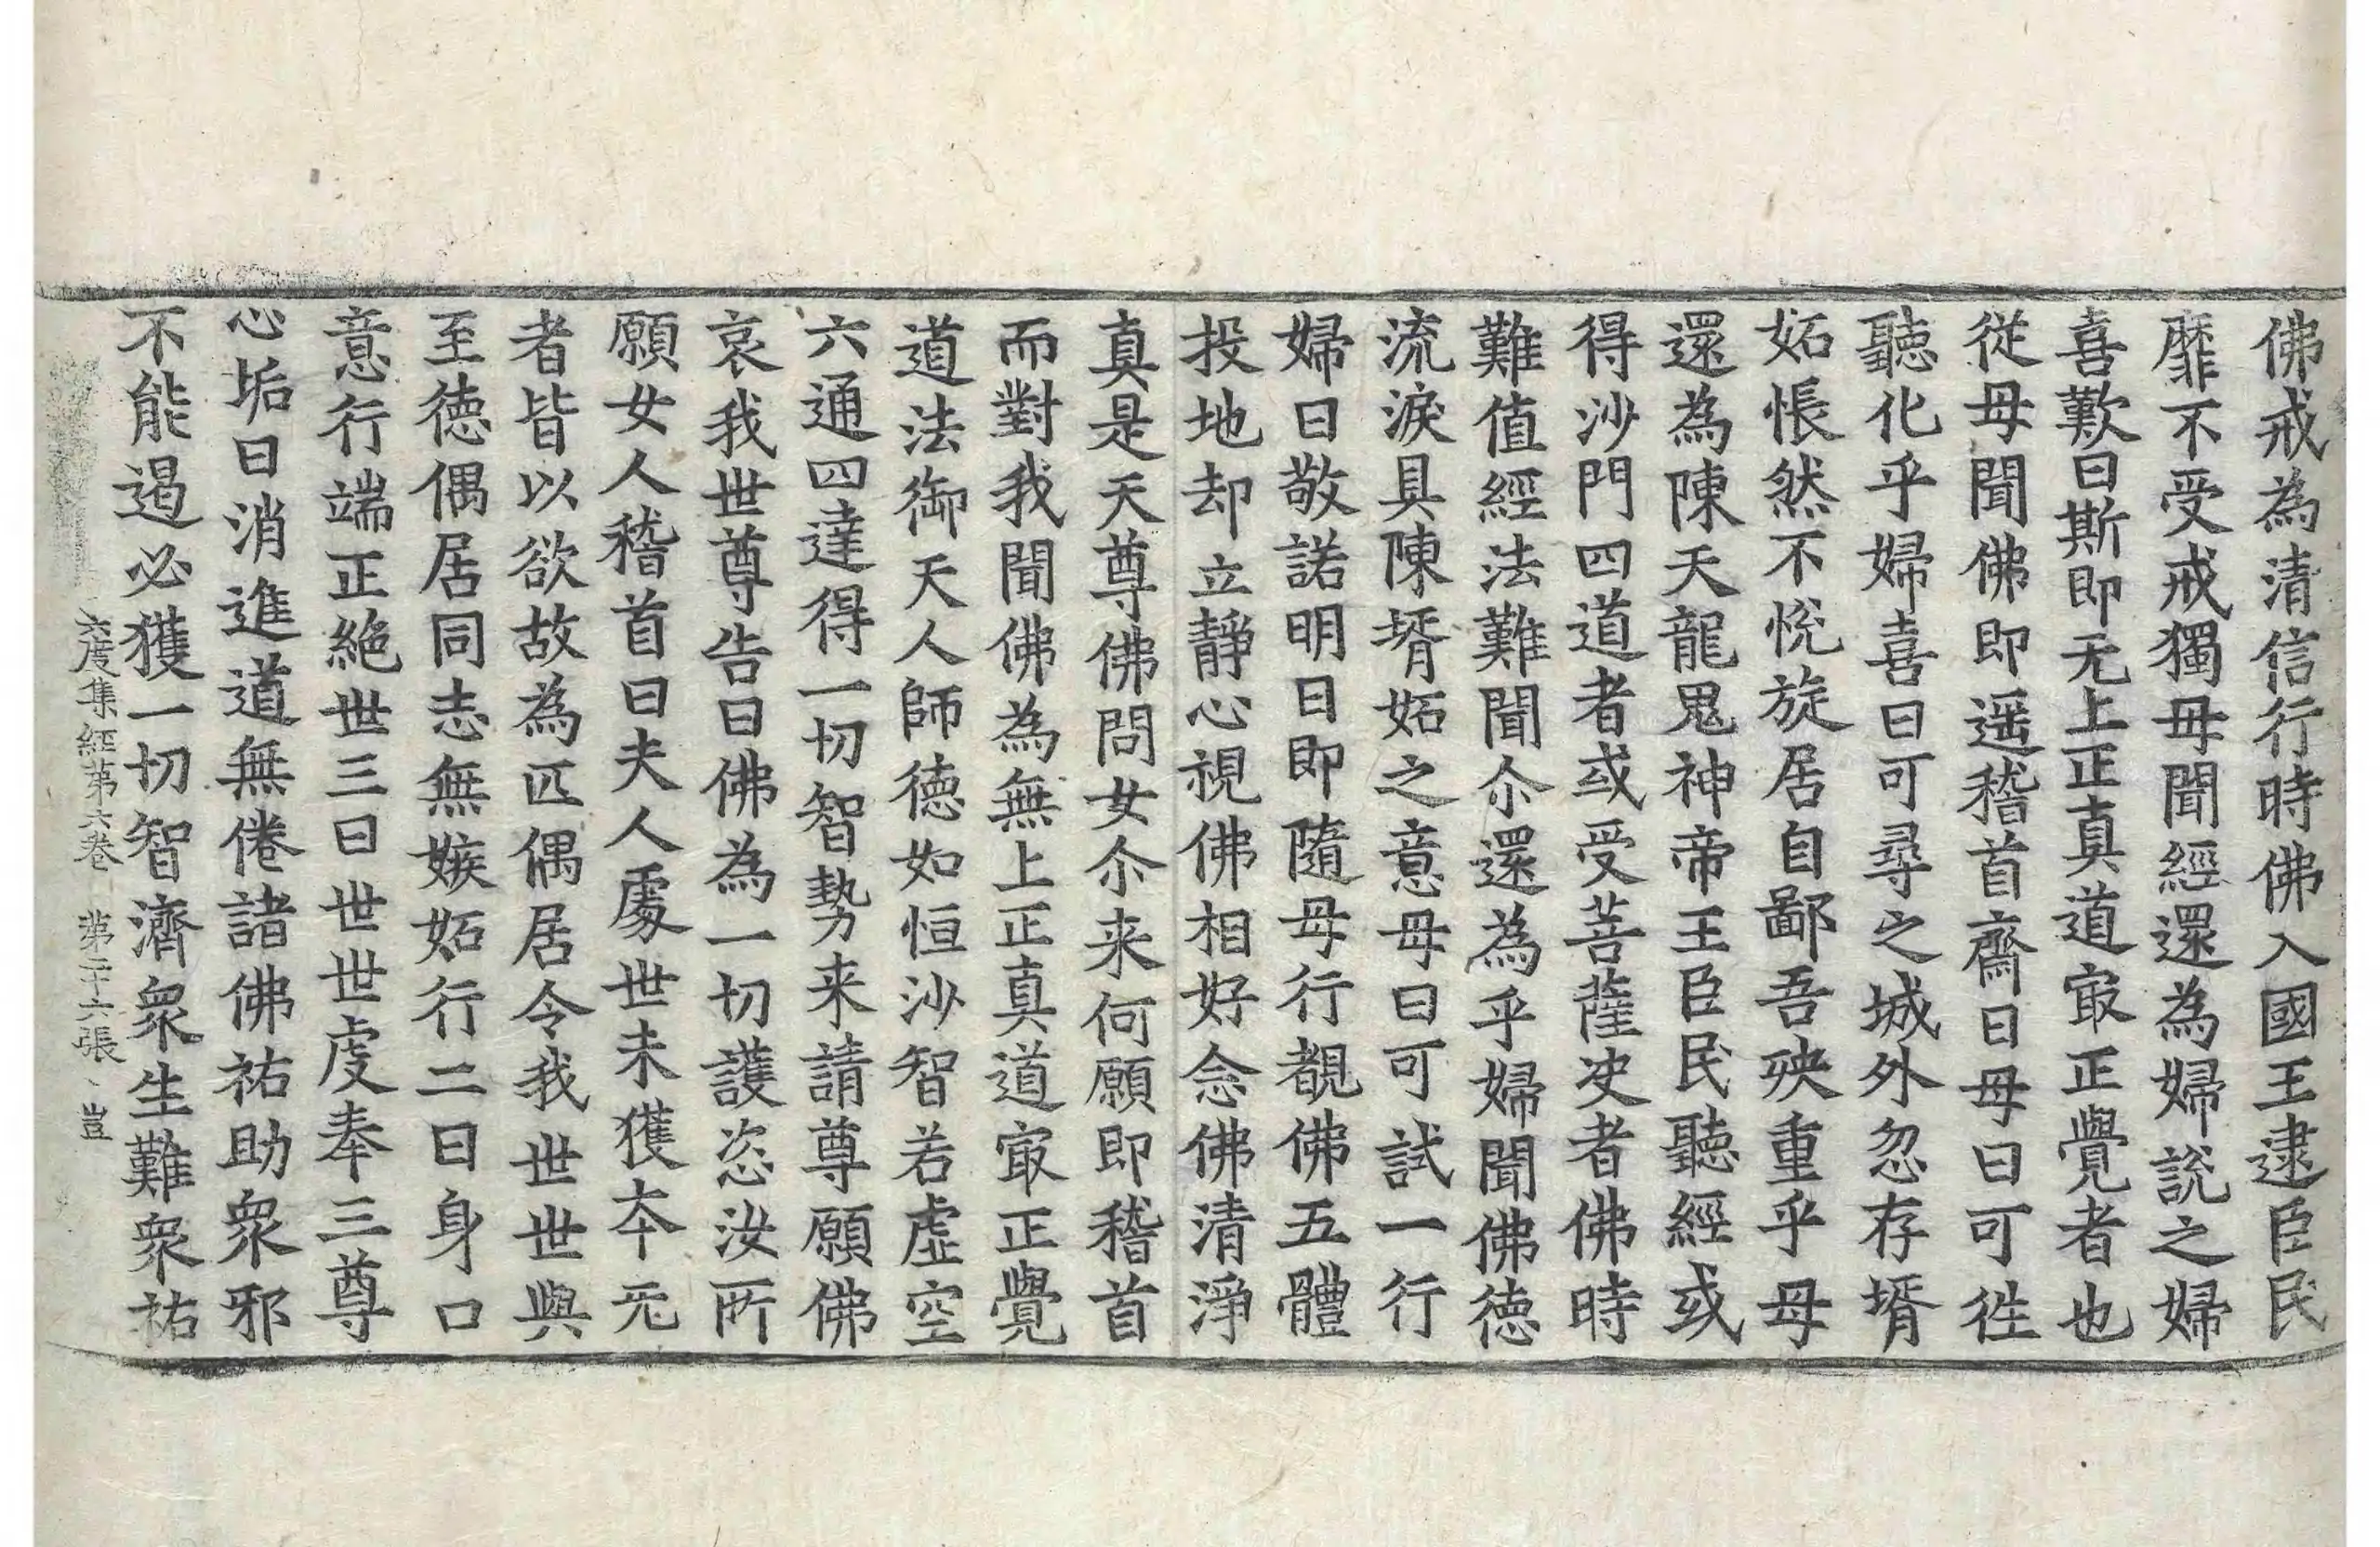 佛戒為清信行時佛入國王逮臣民
靡不受戒獨母聞經還為婦說之婦
喜歎曰斯即无上正真道㝡正覺者也
從母聞佛即遥稽首齋日母曰可徃
聽化乎婦喜曰可尋之城外忽存壻
妬悵然不悅旋居自鄙吾殃重乎母
還為陳天龍鬼神帝王臣民聽經或
得沙門四道者或受菩薩决者佛時
難值經法難聞尒還為乎婦聞佛德
流淚具陳壻妬之意母曰可試一行
婦曰敬諾明日即隨母行覩佛五體
投地却立靜心視佛相好念佛清淨
真是天尊佛問女尒来何願即稽首
而對我聞佛為無上正真道㝡正覺
道法御天人師德如恒沙智若虛空
六通四達得一切智勢来請尊願佛
哀我世尊告曰佛為一切護恣汝所
願女人稽首曰夫人處世未獲夲元
者皆以欲故為匹偶居令我世世與
至德偶居同志無嫉妬行二曰身口
意行端正絶世三曰世世虔奉三尊
心垢日消進道無倦諸佛祐助衆邪
不能遏必獲一切智濟衆生難衆祐
六度集經第六卷 第二十六張 豈